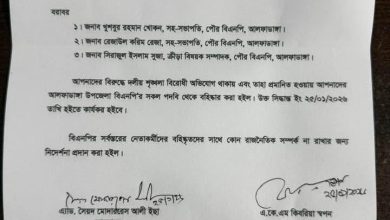 বরাবর
১। জনাব খুশবুর রহমান খোকন, সহ-সভাপতি, পৌর বিএনপি, আলফাডাঙ্গা।
২। জনাব রেজাউল করিম রেজা, সহ-সভাপতি, পৌর বিএনপি, আলফাডাঙ্গা।
৩। জনাব সিরাজুল ইসলাম সুজা, ক্রীড়া বিষয়ক সম্পাদক, পৌর বিএনপি, আলফাডাঙ্গা।
আপনাদের বিরুদ্ধে দলীয় শৃঙ্খলা বিরোধী অভিযোগ থাকায় এবং তাহা প্রমানিত হওয়ায় আপনাদের
আলফাডাঙ্গা উপজেলা বিএনপি'র সকল পদবি থেকে বহিষ্কার করা হইল। উক্ত সিদ্ধান্ত ইং ২৫/০১/২০২৬
তারিখ হইতে কার্যকর হইবে।
বিএনপির সর্বস্তরের নেতাকর্মীদের বহিষ্কৃতদের সাথে কোন রাজনৈতিক সম্পর্ক না রাখার জন্য
নির্দেশনা প্রদান করা হইল।
এ্যাড, সৈয়দ মোদাররেস আলী ইছা
এ.কে.এম কিবরিয়া স্বপন